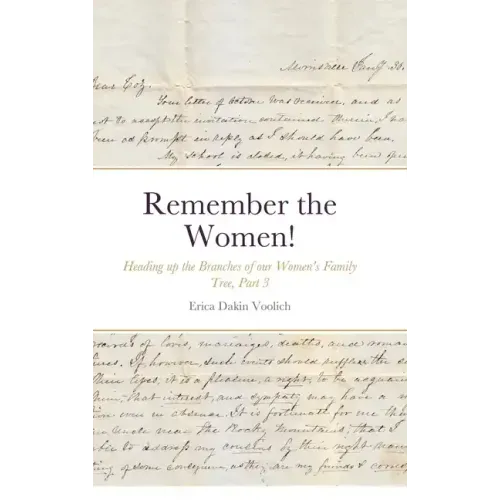 Dear Coz.
Your letter of October was received, and as
to accept the invitation contained therein, I
prompt in reply as I should have been.
My school is closed, it having been
Remember the
Women!
Heading up the Branches of our Women's Family
Tree, Part 3
Erica Dakin Voolich
of love, marriages, deaths, and
If, however, such events should suffer the
types, it is a pleasure, a right, to be
that interest, and sympathy may have a
even in absence. It is fortunate for me
Uncle near the Rocky Mountains, that I
to address my cousins by their right
of some consequence, as they are my friends &